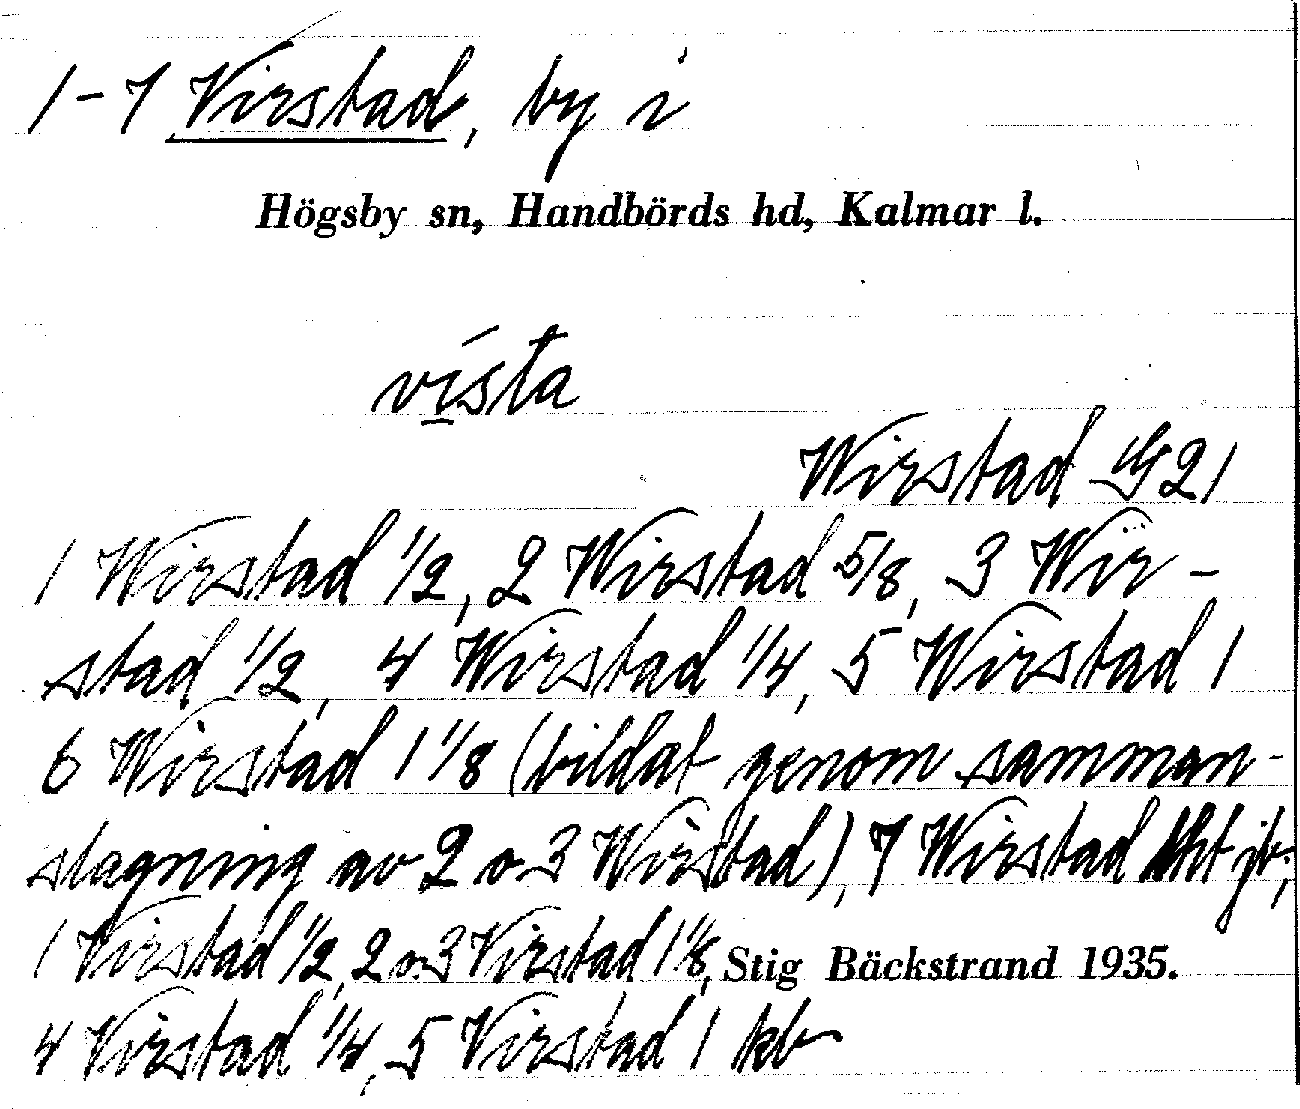 1-7 Virstad, by i
Högsby sn, Handbörds hd, Kalmar l.
vísta
Wirstad G21
1 Wirstad 1/2, 2 Wirstad 5/8, 3 Wir-
stad 1/2, 4 Wirstad 1/4, 5 Wirstad 1
6 Wirstad 1 1/8 (bildat genom samman-
slagning av 2 o 3 Wirstad), 7 Wirstad jb;
1 Virstad 1/2, 2 o 3 Virstad 1 1/8, Stig Bäckstrand 1935.
4 Virstad 1/4, 5 Virstad 1 kb